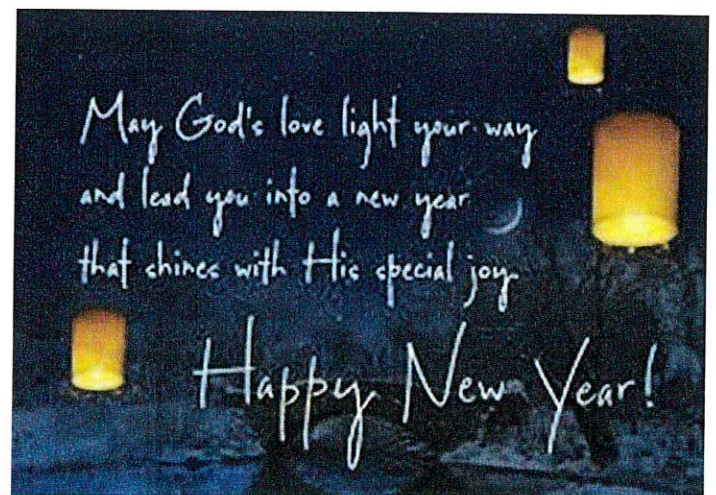 May God's love light your way
and lead you into a new year
that shines with His special joy.
Happy New Year!